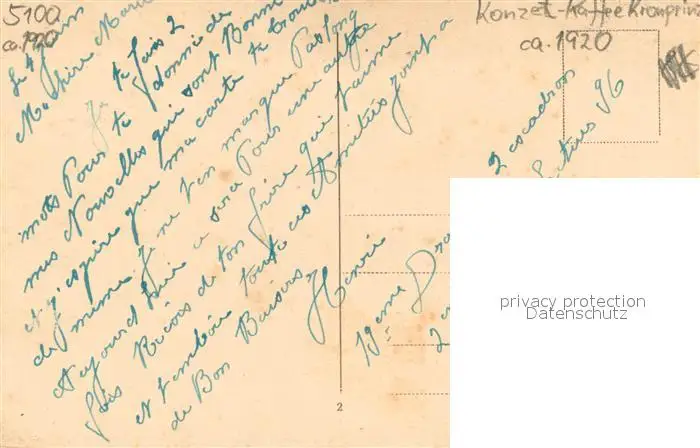 5100
ca. 1920
Konzet-Kaffee Kronprinz
ca. 1920
Le 4 Juin
Ma chère Marie
Je te fais 2
mots Pour te donné de
mes Nouvelles qui sont Bonne
et j'espère que ma carte te trouve
de même Je ne t'en marque Pas long
Aujourd'hui ce sera Pour une autre
fois Recois de ton frère qui t'aime
et t'embrasse toute ces Amitiés joint a
de Bon Baisers
Henri
19eme Dra
2 escadron
Secteur 96
2
privacy protection
Datenschutz